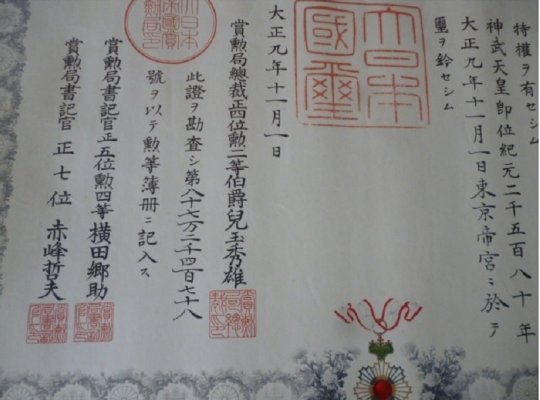 特權ヲ有セシム
神武天皇卽位紀元二千五百八十年
大正九年十一月一日東京帝宮ニ於テ
璽ヲ鈐セシム
大日本
國璽
大正九年十一月一日
賞勲局總裁正四位勲二等伯爵兒玉秀雄
此證ヲ勘査シ第八十七万二千四百七十八
號ヲ以テ勲等簿册ニ記入ス
賞勲局書記官正五位勲四等横田郷助
賞勲局書記官正七位赤峰哲夫